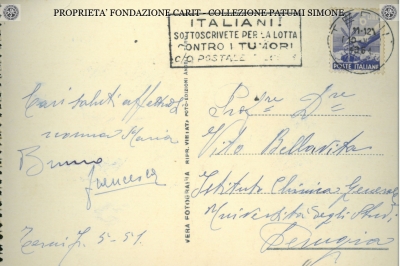 PROPRIETA' FONDAZIONE CARIT - COLLEZIONE PATUMI SIMONE
ITALIANI!
SOTTOSCRIVETE PER LA LOTTA
CONTRO I TUMORI
C/O POSTALE
11-12
POSTE ITALIANE
Cari saluti affettuosi
nonna Maria
Bruno
Francesca
Terni
5-51
VERA FOTOGRAFIA
RIPR. VIETATA
Vito Bellavita
Istituto Chimica Generale
Università degli Studi
Perugia